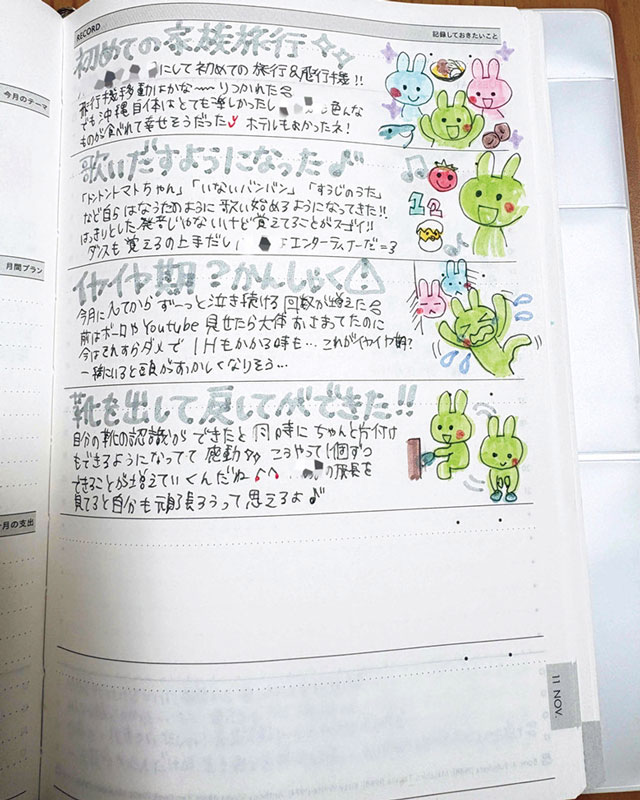 RECORD
記録しておきたいこと
初めての家族旅行
にして初めての旅行&飛行機!!
飛行機移動はかな〜りつかれた
でも沖縄自体はとても楽しかったし 色んな
ものが食べれて幸せそうだった ホテルもよかったネ!
歌いだすようになった♪
「トントントマトちゃん」「いないバンバン」「すうじのうた」
など自らはなうたのように歌い始めるようになってきた!!
はっきりとした発音じゃないけど覚えてることがスゴイ!!
ダンスも覚えるの上手だし エンターティナーだ=3
1 2
イヤイヤ期?かんしゃく
今月に入ってからずーっと泣き続ける回数が増えた
前はボーロやYoutube見せたら大体おさまってたのに
今はそれすらダメで1Hもかかる時も…これがイヤイヤ期?
一緒にいると頭がおかしくなりそう…
靴を出して戻してができた!!
自分の靴の認識ができたと同時にちゃんと片付け
もできるようになってて感動 こうやって1個ずつ
できることが増えていくんだね の成長を
見てると自分も頑張ろうって思えるよ♪
今月のテーマ
月間プラン
月の支出
11 NOV.